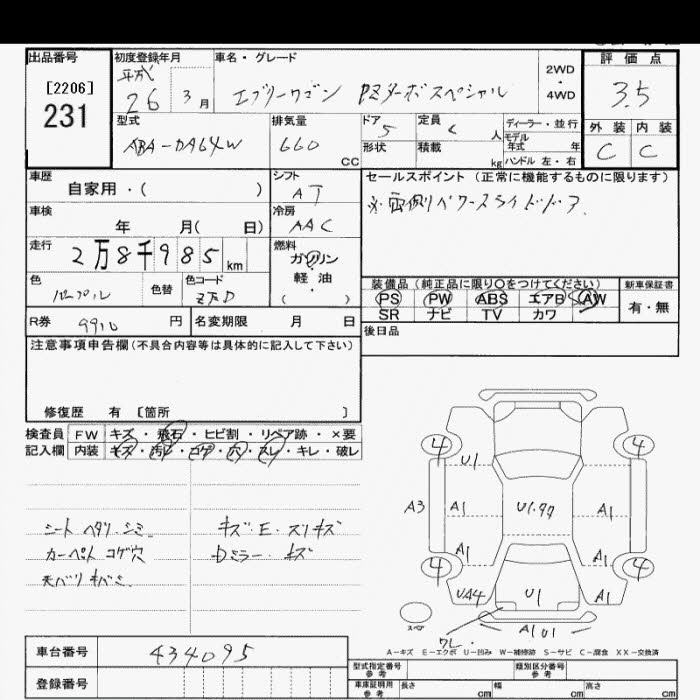 出品番号 初度登録年月 車名・グレード 評価点
[2206] 平成 2WD
231 26 3月 エブリーワゴン PZターボスペシャル ・ 3.5
4WD
型式 排気量 ドア 定員 ディーラー・並行 外装 内装
ABA-DA64W 660 CC 5 人 モデル年式 年 C C
形状 積載 kg ハンドル 左・右
車歴 シフト セールスポイント (正常に機能するものに限ります)
自家用・( ) AT
車検 冷房
年 月( 日) AAC
走行 燃料
2万8千985km ガソリン
軽・油
( ・ )
色 色替 色コード 装備品(純正品に限り○をつけてください) 新車保証書
パープル ZJD PS PW ABS エアB AW 有・無
SR ナビ TV カワ
R券 9910円 名変期限 月 日 後日品
注意事項申告欄(不具合内容等は具体的に記入して下さい)
修復歴 有 [箇所 ]
検査員 FW キズ・飛石・ヒビ割・リペア跡・×要
記入欄 内装 キズ・汚レ・コゲ・穴・スレ・キレ・破レ
シート ヘタリ シミ キズ・E・スリキズ
カーペット コゲ穴 Dミラー キズ
天バリ キバミ
4 4
U1
A3 A1 U1.97 A1
A1 A1
4 4
UA4 U1 A1
スペア
ワレ A1U1
A-キズ E-エクボ U-凹み W-補修跡 S-サビ C-腐食 XX-交換済
車台番号 434095
登録番号
型式指定番号 参考 類別区分番号 参考
車庫証明用 参考 長さ cm 幅 cm 高さ cm